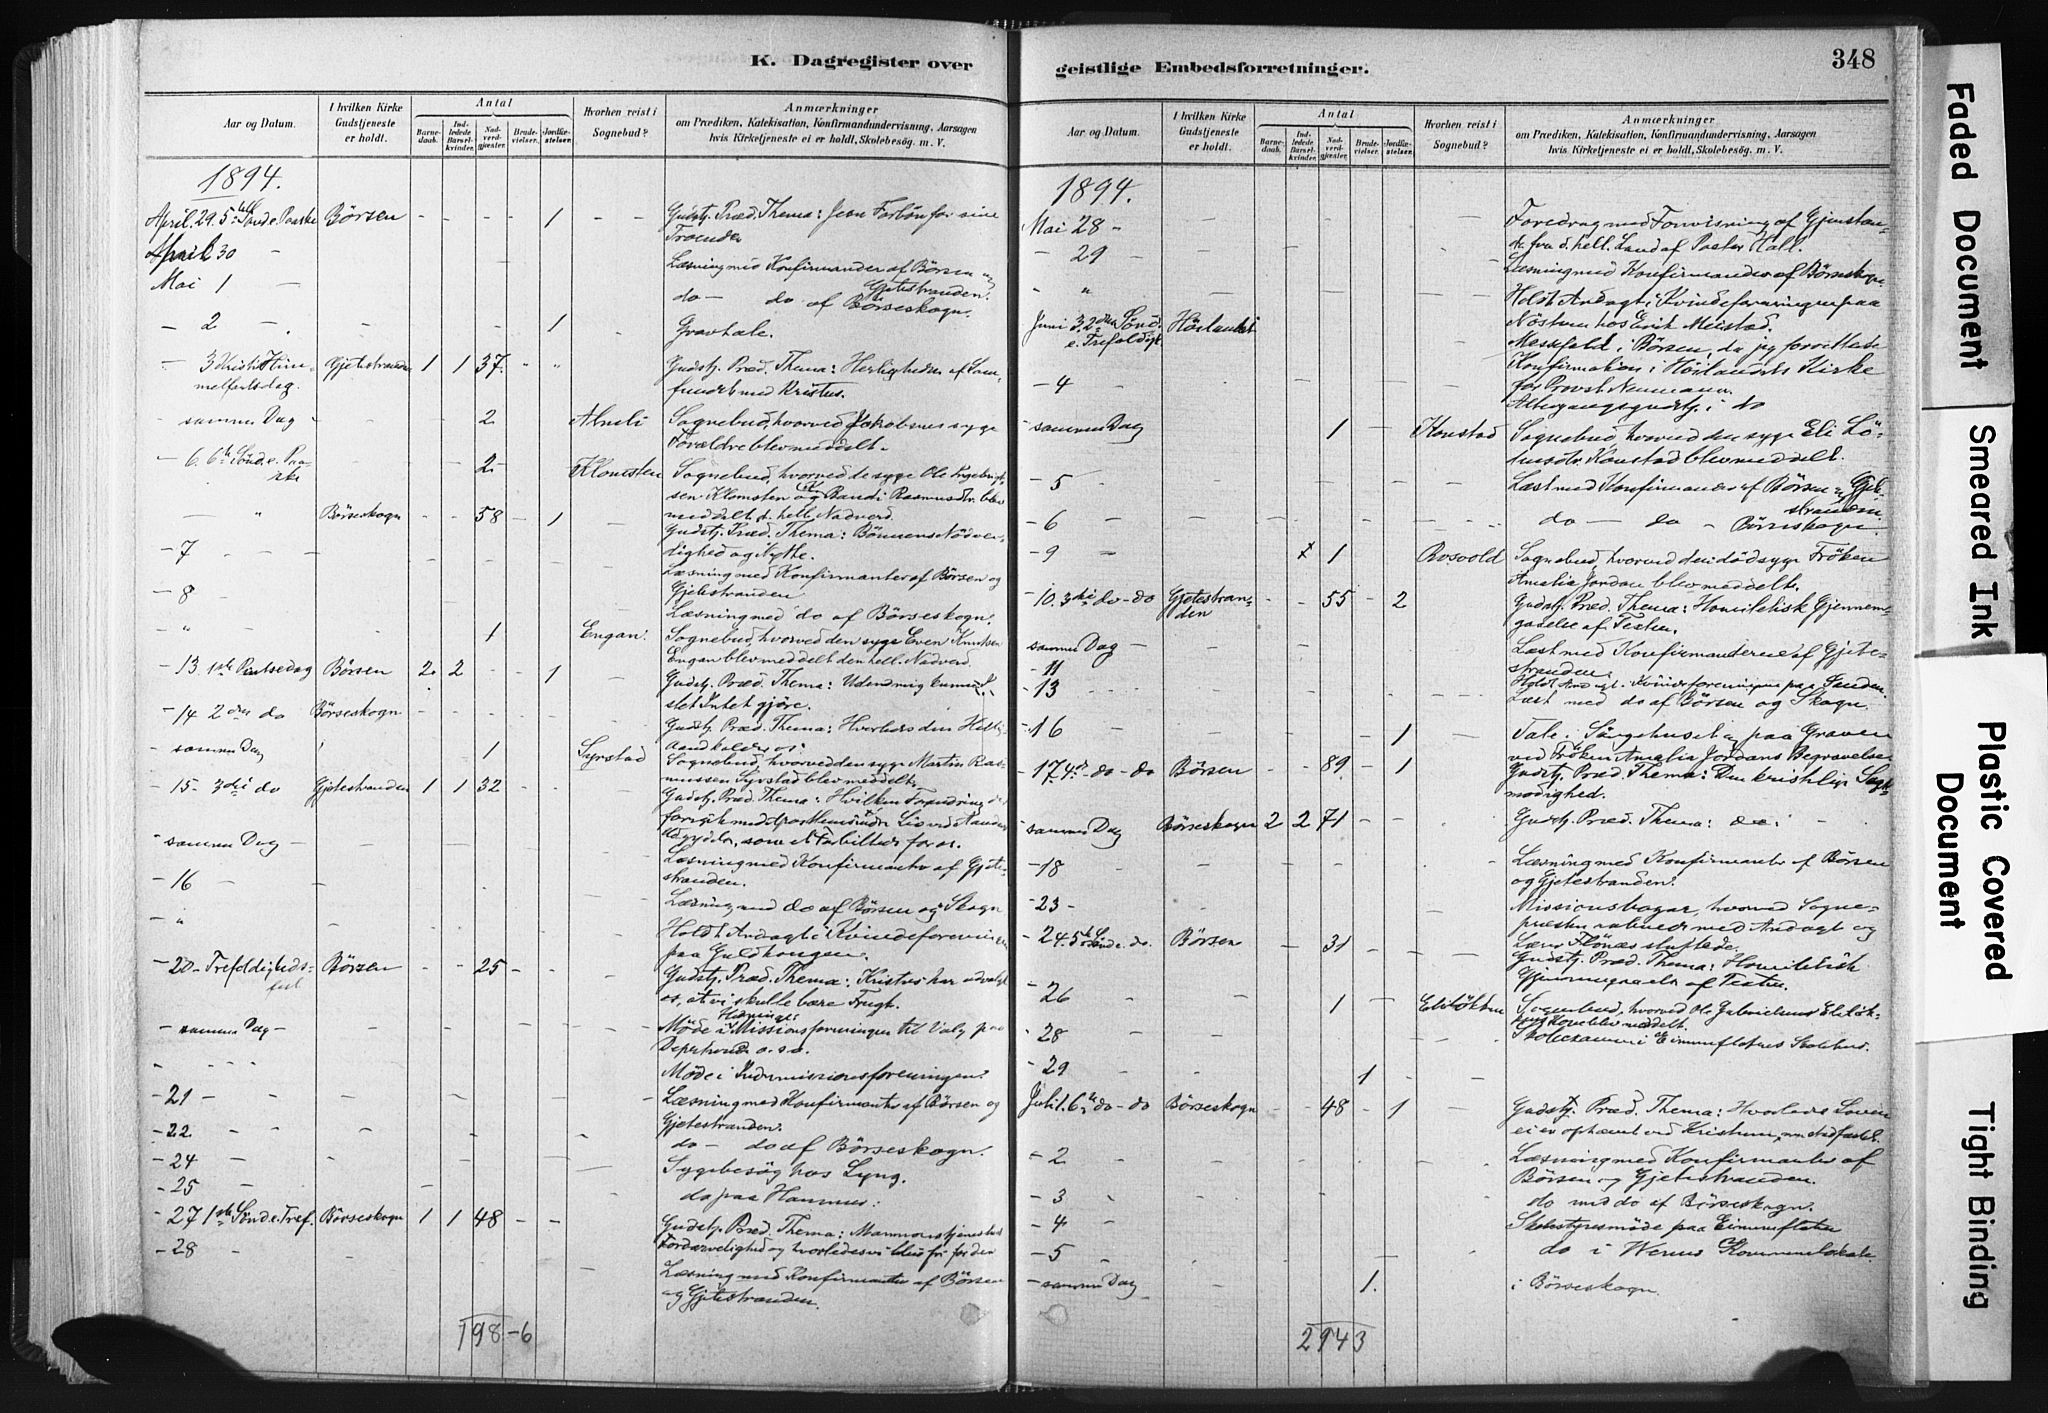 K. Dagregister over
Aar og Datum.
I hvilken Kirke Gudstjeneste er holdt.
Antal
Barnedaab.
Indledede Barselkvinder.
Nadverdgjæster.
Brudevielser.
Jordfæstelser.
Hvorhen reist i Sognebud?
Anmærkninger
om Prædiken, Katekisation, Konfirmandundervisning, Aarsagen
hvis Kirketjeneste ei er holdt, Skolebesøg. m. V.
1894.
April 29. 5te Sønd. e. Paaske Børsen - - - - 1 - - Gudstj. Præd. Thema: Jesu Forbøn for sine
Troende
April 30 - Læsning med Konfirmander af Børsen og
Gjetestranden.
Mai 1 - do - do af Børseskogn.
- 2 - 1 Gravtale.
- 3 Kristi Him- Gjetestranden 1 1 37. Gudstj. Præd. Thema: Herligheden af Sam-
melfartsdag. fundet med Kristus.
- samme Dag 2 Alnsli Sognebud, hvorved Jakobsens syge
Forældre blev meddelt.
- 6. 6te Sønd. e. Paa- 2 Klomsten Sognebud, hvorved de syge Ole Ingebrigt-
ske sen Klomsten og Randi Rasmusdtr. blev
meddelt d. hell. Nadverd.
- " Børseskogn - - 58 - 1 Gudstj. Præd. Thema: Bønnens Nødven-
dighed og Nytte.
- 7 Læsning med Konfirmanter af Børsen og
Gjetestranden
- 8 Læsning med do af Børseskogn.
- " 1 Engan. Sognebud, hvorved den syge Even Knutsen
Engan blev meddelt den hell. Nadverd.
- 13 1ste Pintsedag Børsen 2 2 - - 1 Gudstj. Præd. Thema: Uden mig kunne I
slet Intet gjöre.
- 14 2den do Børseskogn - - - - - Gudstj. Præd. Thema: Hvorledes den Hellig-
aand kalder os.
- samme Dag 1 Syrstad Sognebud, hvorved den syge Martin Ras-
mussen Syrstad blev meddelt.
- 15 3die do Gjetestranden 1 1 32 Gudstj. Præd. Thema: Hvilken Forandring der
foregik med Apostlernes indre Liv ved Aandens
Udgydelse, som et Forbillede for os.
- samme Dag - Læsning med Konfirmanter af Gjete-
stranden.
- 16 - Læsning med do af Børsen og Skogn
- " Holdt Andagt i Kvindeforeningen
paa Guldkongen.
- 20 - Trefoldigheds- Børsen - - 25 - - Gudstj. Præd. Thema: Kristus har udvalgt
fest os, at vi skulle bære Frugt.
- samme Dag - Møde i Missionsforeningen til Valg paa
o.s.v.
Møde i Indremissionsforeningen.
- 21 - Læsning med Konfirmanter af Børsen og
Gjetestranden.
- 22 do - do af Børseskogn.
- 24 Sygebesøg hos Lyng.
- 25 do paa Hammer.
- 27 1ste Sønd. e. Tref. Børseskogn 1 1 48 - - Gudstj. Præd. Thema: Mammonstjenestens
Fordærvelighed og hvorledes vi blive fri for den
- 28 Læsning med Konfirmanter af Børsen
og Gjetestranden.
198-6
geistlige Embedsforretninger.
348
Aar og Datum.
I hvilken Kirke Gudstjeneste er holdt.
Antal
Barnedaab.
Indledede Barselkvinder.
Nadverdgjæster.
Brudevielser.
Jordfæstelser.
Hvorhen reist i Sognebud?
Anmærkninger
om Prædiken, Katekisation, Konfirmandundervisning, Aarsagen
hvis Kirketjeneste ei er holdt, Skolebesøg. m. V.
1894.
Mai 28 - Foredrag med Fonvisning af Gjenstan-
de fra d. hell. Land af Pastor Hall.
- 29 - Læsning med Konfirmander af Børseskogn.
- " Holdt Andagt i Kvindeforeningen paa
hos Erik Melstad.
Juni 3. 2den Sønd. Höilandet Messefald i Børsen, da jeg forrettede
e. Trefoldigh. Konfirmation i Höilandets Kirke
for Provst Neumann.
- 4 Altergangsgudstj. i do
- samme Dag 1 - Konstad Sognebud, hvorved den syge Eli
Konstad blev meddelt.
- 5 Læst med Konfirmander af Børsen og Gjete-
stranden.
- 6 do - do - Børseskogn.
- 9 - 1 - Rosvold Sognebud, hvorved den dødssyge Frøken
Amalia Jordan blev meddelt.
- 10. 3die do - do Gjetestran- - - 55 - 2 Gudstj. Præd. Thema: Homiletisk Gjennem-
den gaaelse af Texten.
samme Dag - Læst med Konfirmanderne af Gjete-
stranden.
- 11 Holdt Andagt i Kvindeforeningen paa Fanden.
- 13 Læst med do af Børsen og Skogn.
- 16 1 Tale i Sørgehuset og paa Graven
ved Frøken Amalia Jordans Begravelse
- 17. 4de do - do Børsen - - 89 - 1 Gudstj. Præd. Thema: Den kristelige Sagt-
modighed.
samme Dag Børseskogn 2 2 71 - - Gudstj. Præd. Thema: do.
- 18 Læsning med Konfirmanter af Børsen
og Gjetestranden.
- 23 - Missionsbazar, hvorved Sogne-
præsten med Andagt og
Lærer Flönæs sluttede.
- 24. 5te Sønd. e. do. Børsen - - 31 - - Gudstj. Præd. Thema: Homiletisk
Gjennemgaaelse af Texten.
- 26 1 - Sognebud, hvorved Ole Gabrielsens
Kone blev meddelt.
- 28 Skoleexamen i Eimunflatens Skolehus.
- 29 1
Juli 1. 6te do - do Børseskogn - - 48 - 1 Gudstj. Præd. Thema: Hvorledes Loven
ei er ophævet ved Kristum, men stadfæstet.
- 2 Læsning med Konfirmanter af
Børsen og Gjetestranden.
- 3 do med do af Børseskogn.
- 4 Skolestyresmøde paa Eimunflaten
- 5 do i Kommunelokale
- samme Dag 1. i Børseskogn.
2943
Faded Document
Smeared Ink
Plastic Covered Document
Tight Binding